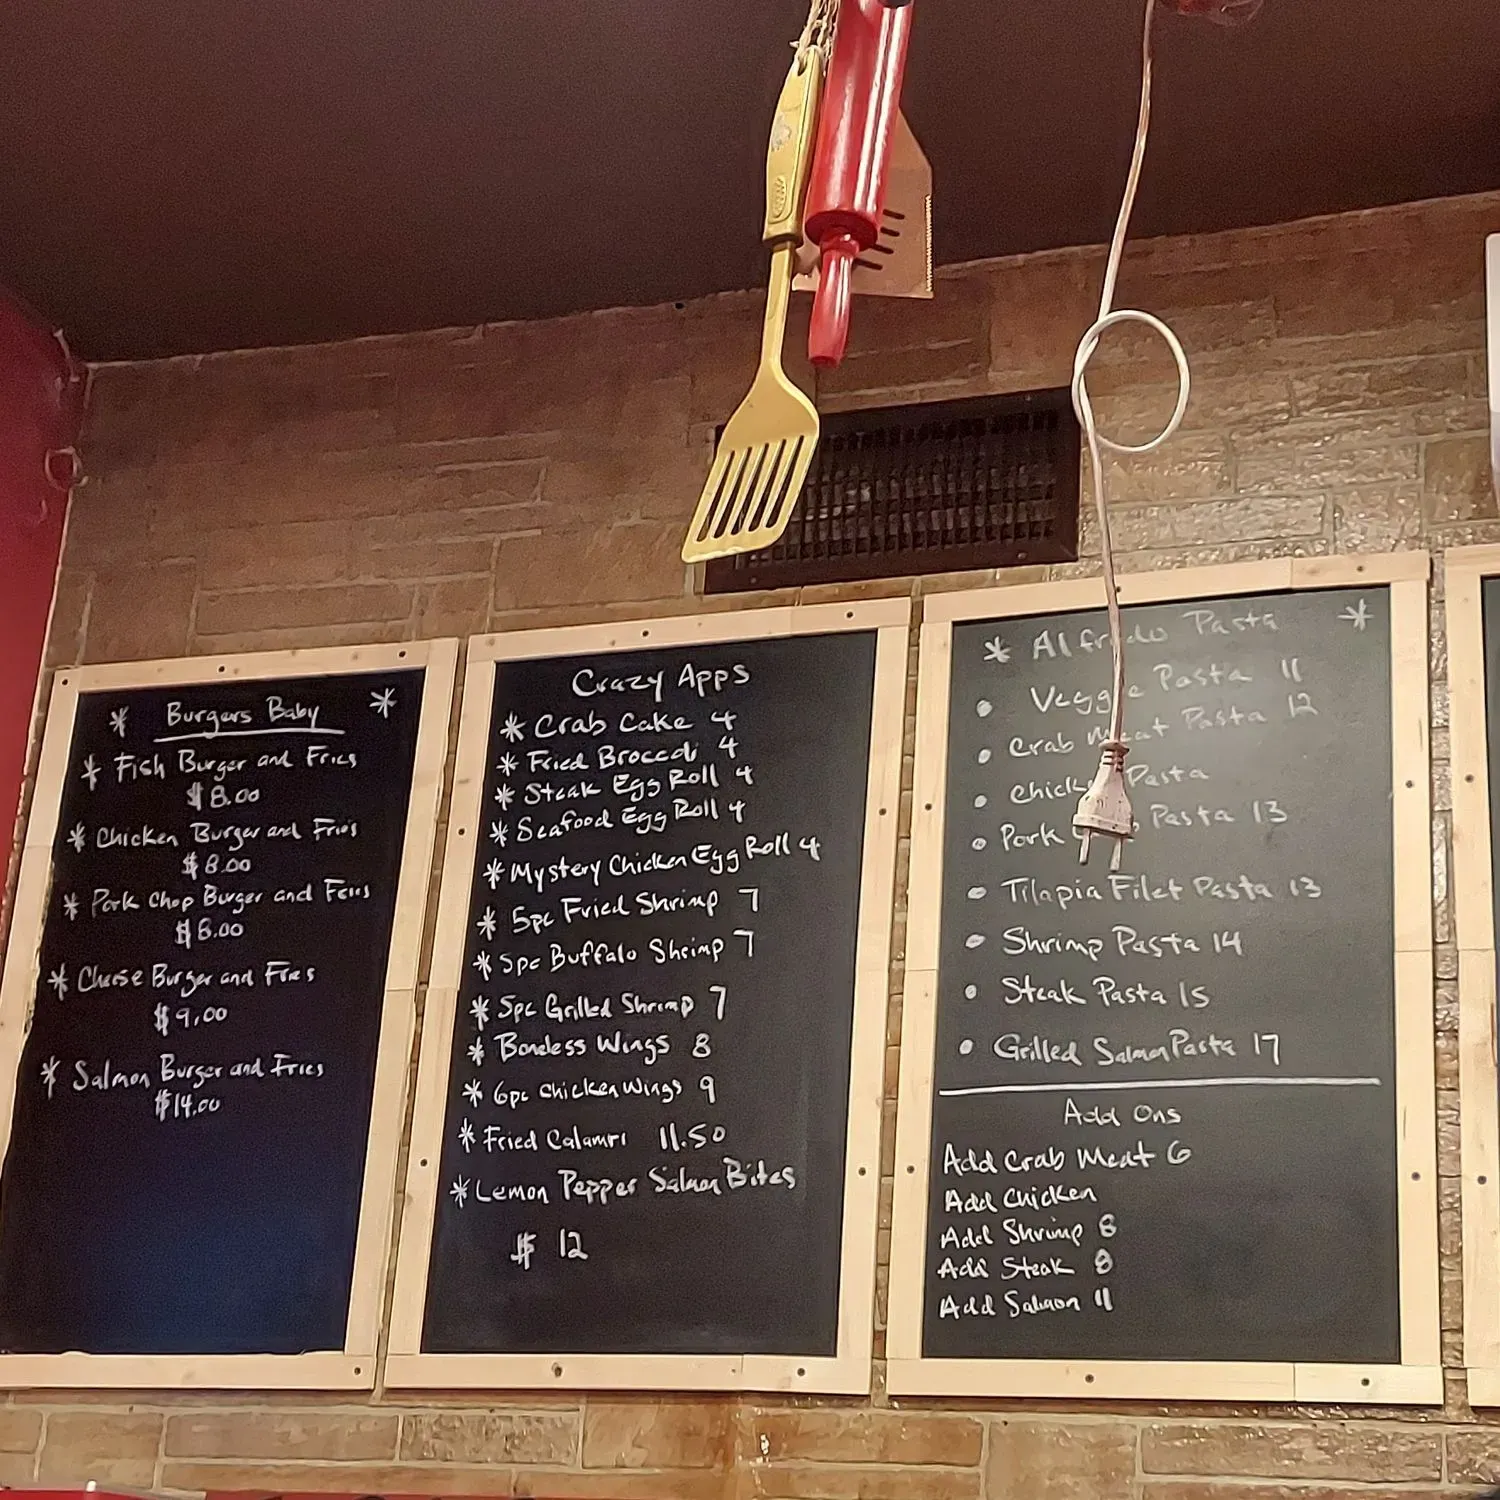 * Burgers Baby *
* Fish Burger and Fries
$8.00
* Chicken Burger and Fries
$8.00
* Pork Chop Burger and Fries
$8.00
* Cheese Burger and Fries
$9.00
* Salmon Burger and Fries
$14.00
Crazy Apps
* Crab Cake 4
* Fried Broccoli 4
* Steak Egg Roll 4
* Seafood Egg Roll 4
* Mystery Chicken Egg Roll 4
* 5pc Fried Shrimp 7
* 5pc Buffalo Shrimp 7
* 5pc Grilled Shrimp 7
* Boneless Wings 8
* 6pc Chicken Wings 9
* Fried Calamri 11.50
* Lemon Pepper Salmon Bites
$ 12
* Alfredo Pasta *
• Veggie Pasta 11
• Crab Meat Pasta 12
• Pasta
• Pork Pasta 13
• Tilapia Filet Pasta 13
• Shrimp Pasta 14
• Steak Pasta 15
• Grilled Salmon Pasta 17
Add Ons
Add Crab Meat 6
Add Chicken
Add Shrimp 8
Add Steak 8
Add Salmon 11